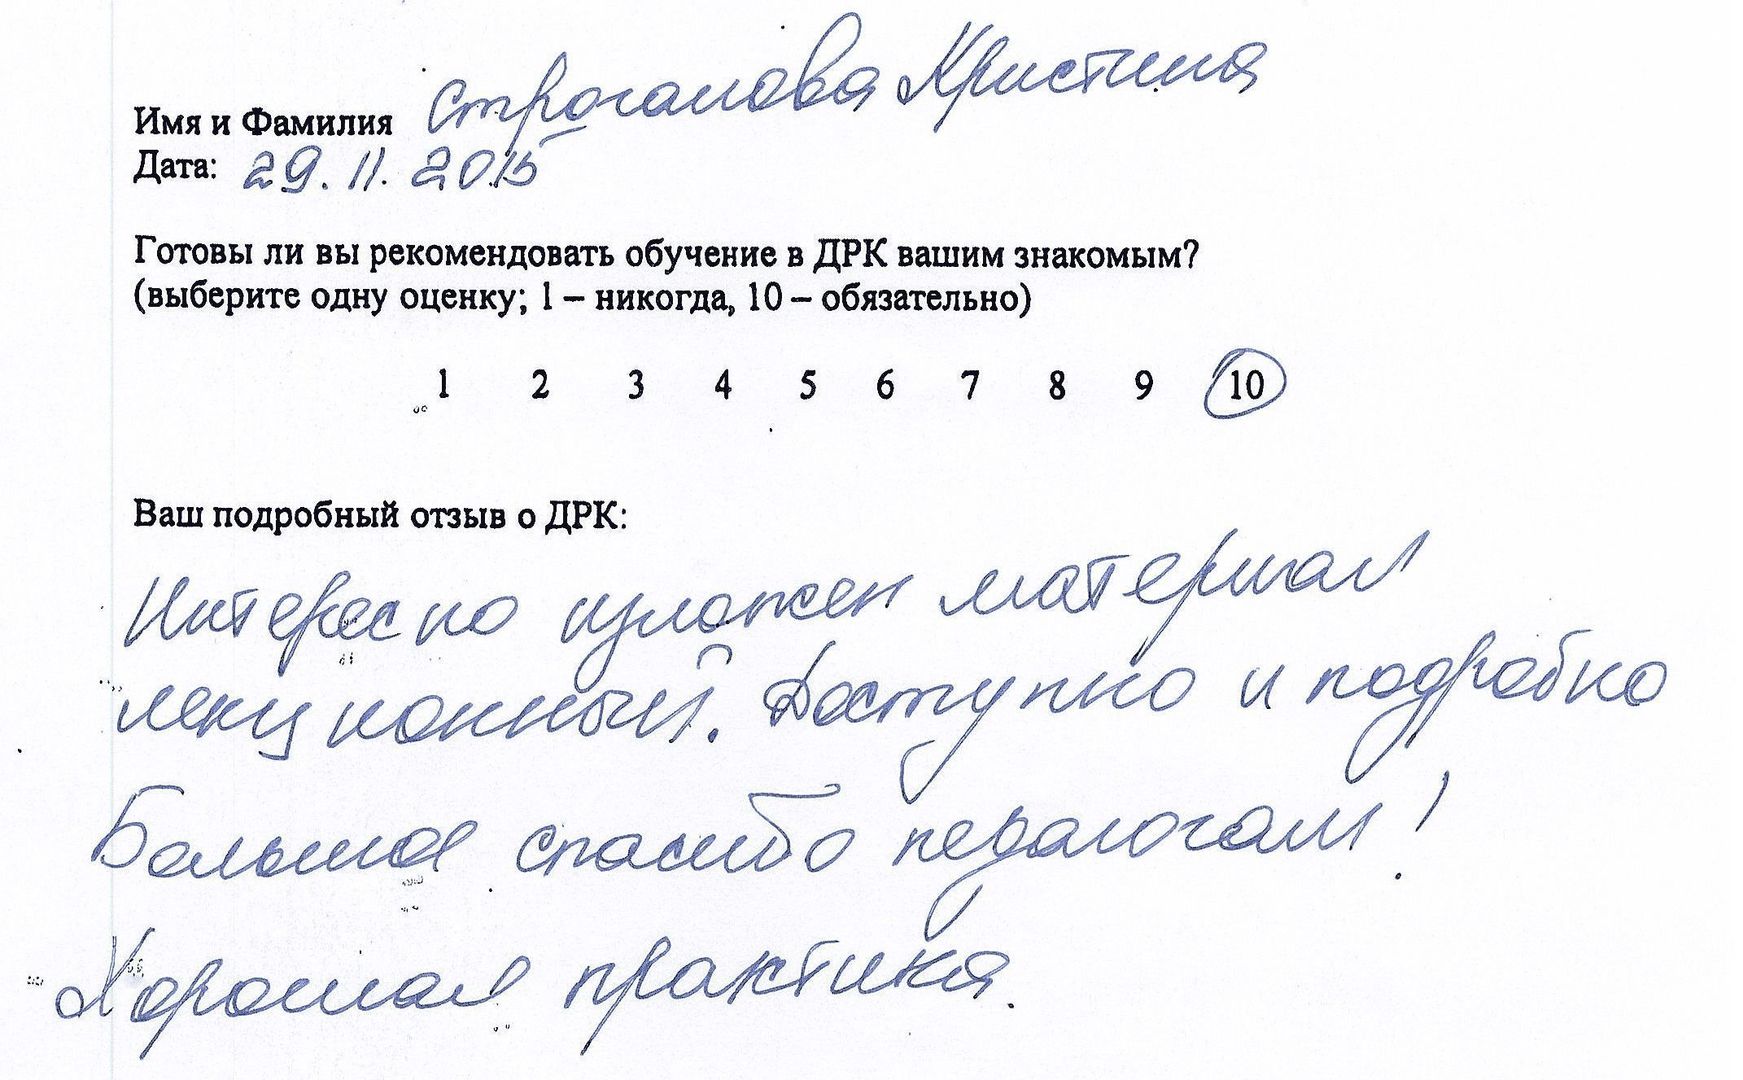 Имя и Фамилия Строганова Кристина
Дата: 29.11.2015
Готовы ли вы рекомендовать обучение в ДРК вашим знакомым?
(выберите одну оценку; 1 – никогда, 10 – обязательно)
1 2 3 4 5 6 7 8 9 10
Ваш подробный отзыв о ДРК:
Интересно изложен материал
лекционный. Доступно и подробно
Большое спасибо педагогам!
Хорошая практика.